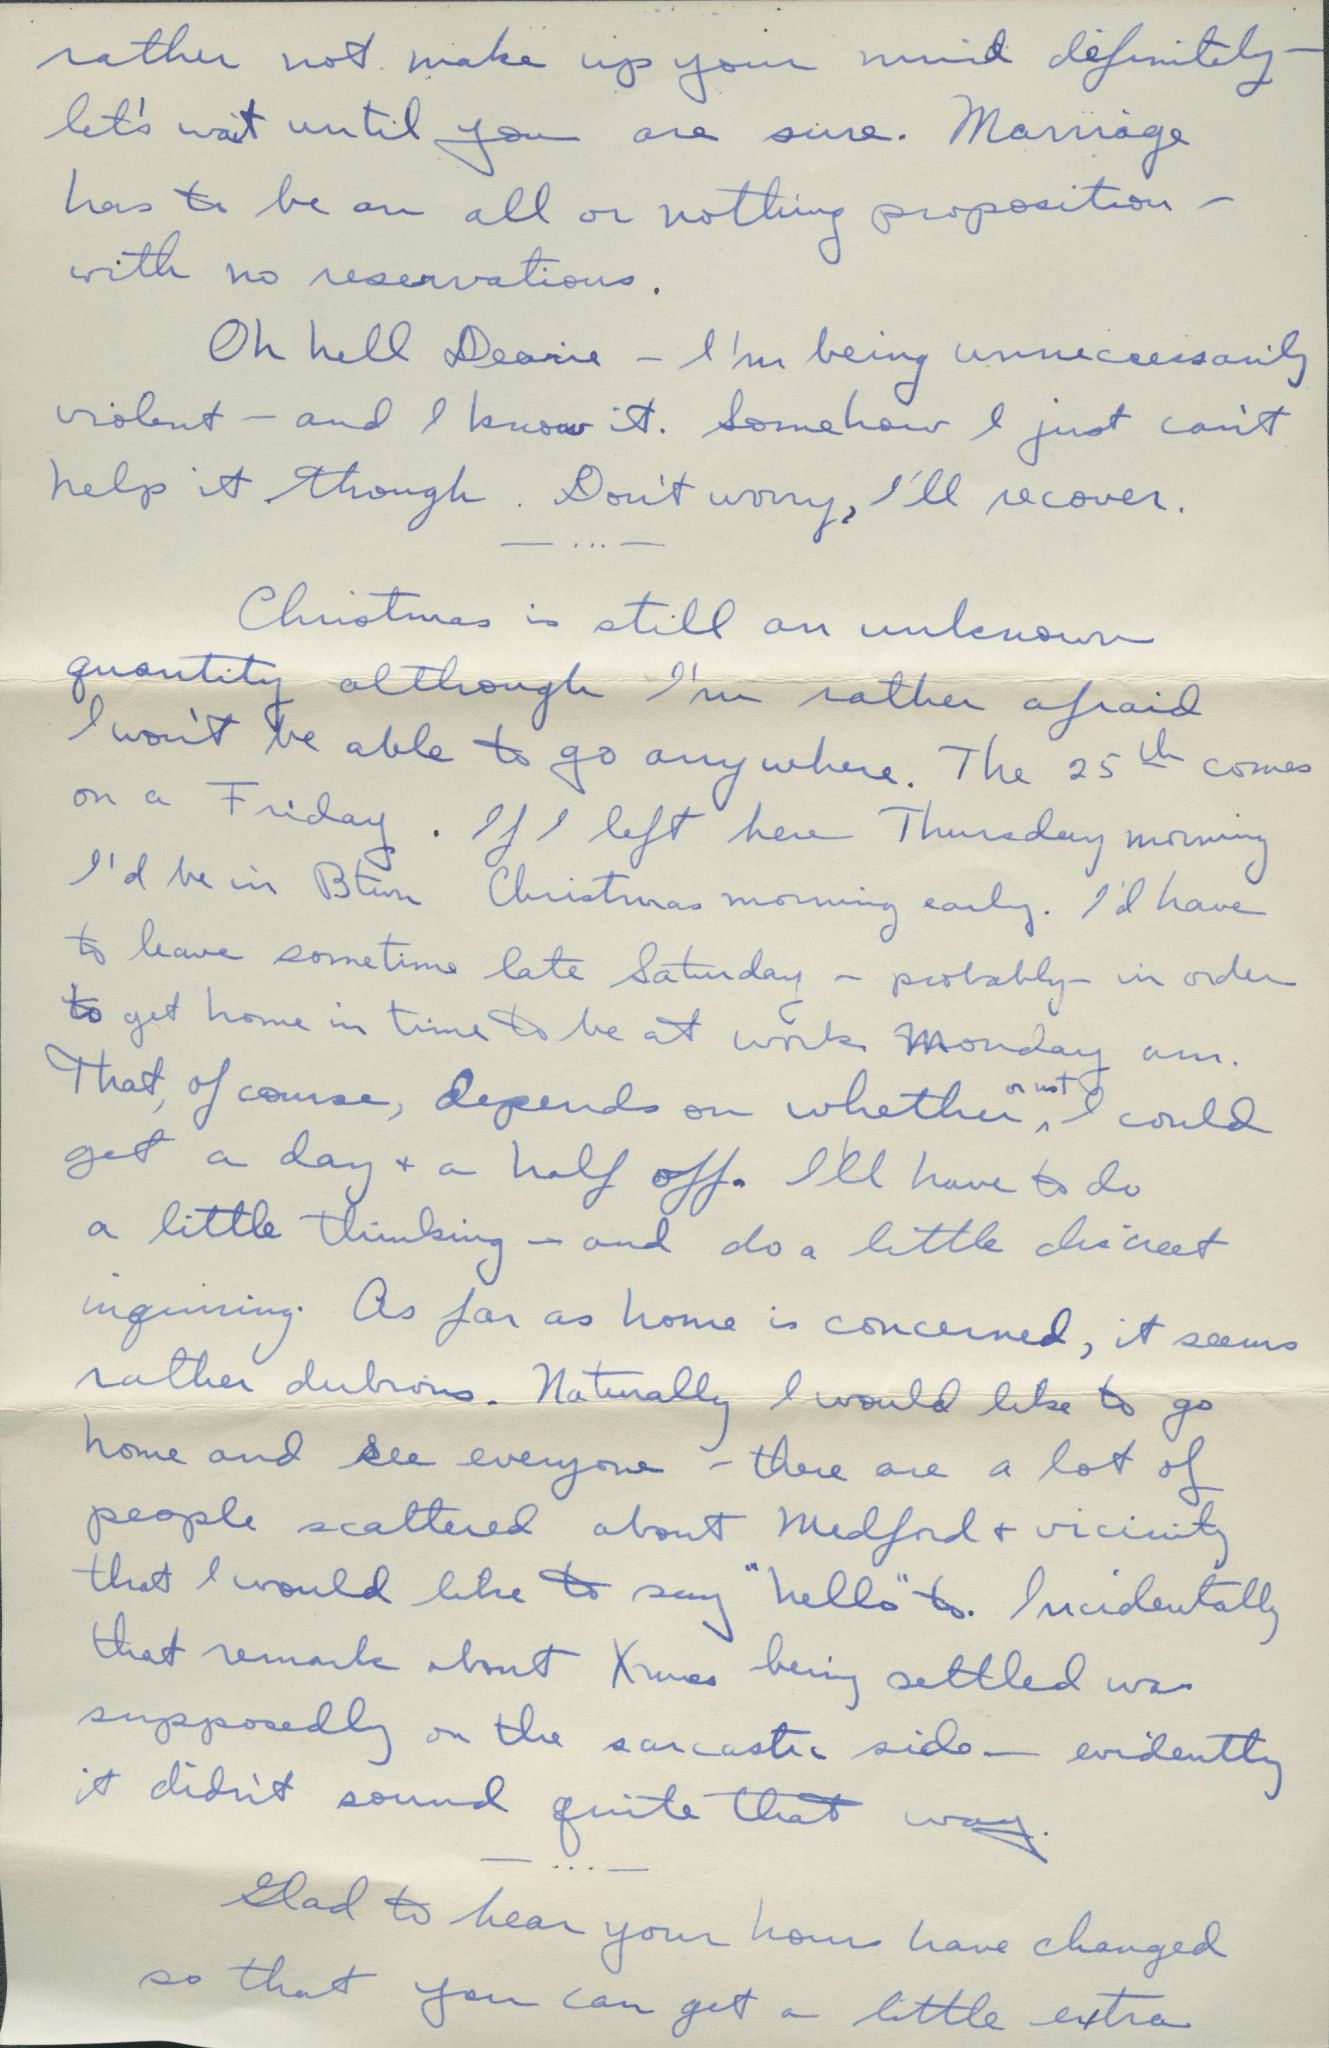 rather not make up your mind definitely –
let's wait until you are sure. Marriage
has to be an all or nothing proposition –
with no reservations.
Oh hell Dearie – I'm being unneccessarily
violent – and I know it. Somehow I just can't
help it though. Don't worry, I'll recover.
— ... —
Christmas is still an unknown
quantity although I'm rather afraid
I won't be able to go anywhere. The 25th comes
on a Friday. If I left here Thursday morning
I'd be in Btwn Christmas morning early. I'd have
to leave sometime late Saturday – probably – in order
to get home in time to be at work Monday am.
That, of course, depends on whether or not I could
get a day + a half off. I'll have to do
a little thinking – and do a little discreet
inquiring. As far as home is concerned, it seems
rather dubious. Naturally I would like to go
home and see everyone – there are a lot of
people scattered about Medford + vicinity
that I would like to say "hello" to. Incidentally
that remark about Xmas being settled was
supposedly on the sarcastic side – evidently
it didn't sound quite that way.
— ... —
Glad to hear your hours have changed
so that you can get a little extra